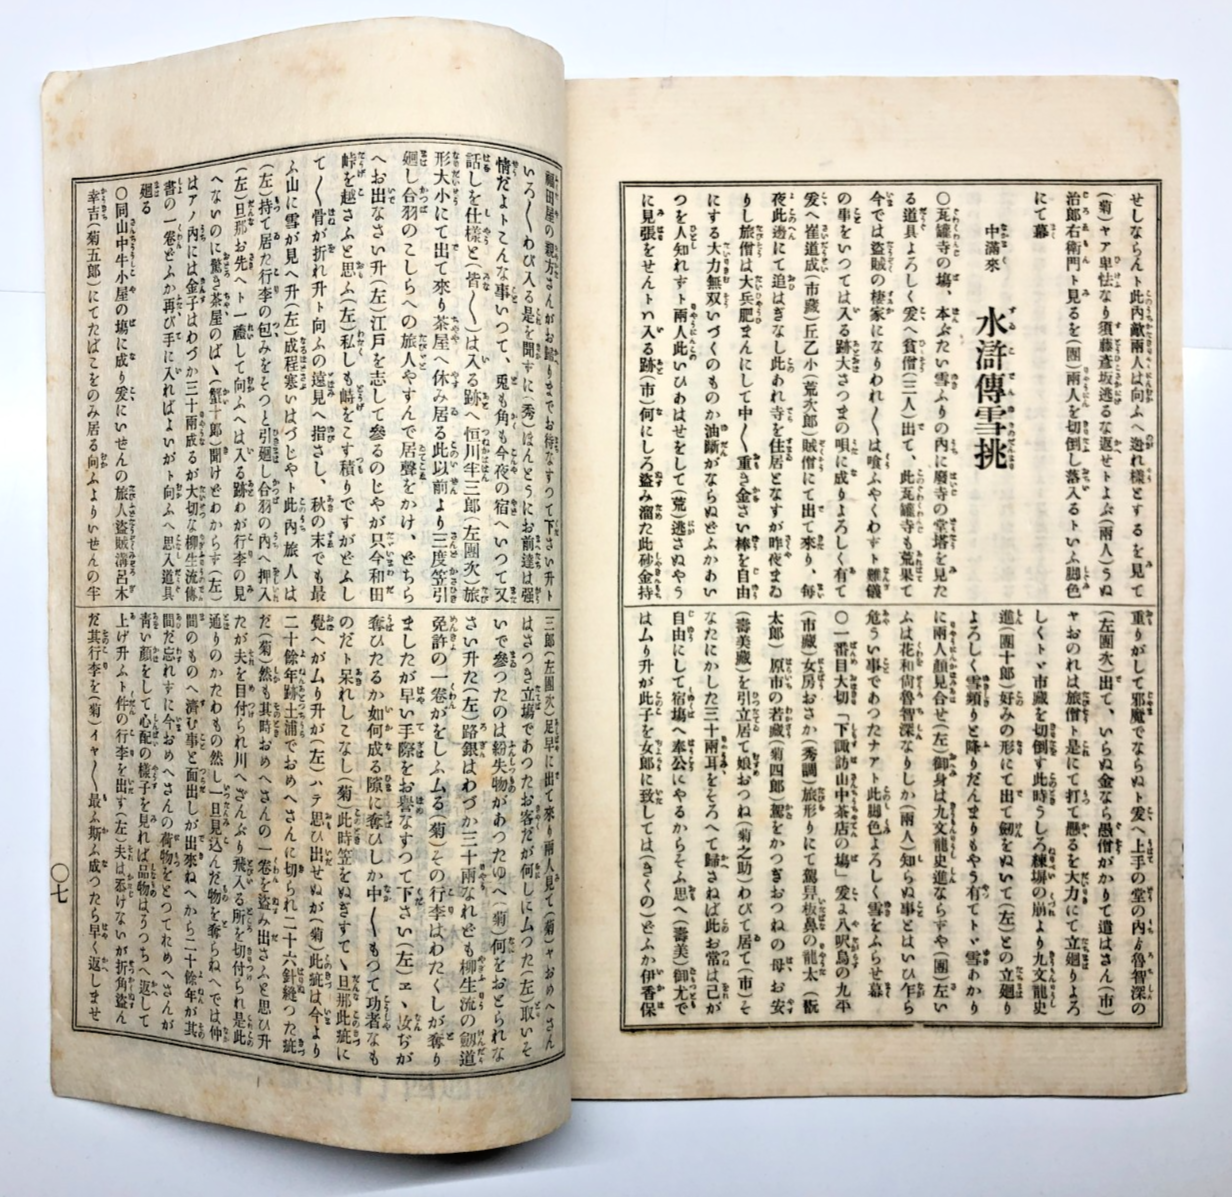 せしならんト此内敵兩人は向ふへ迯れ樣とするを見て
(菊)ヤア卑怯なり須藤彥坂逃るな返せトよぶ(兩人)うぬ
治郎右衞門ト見るを(團)兩人を切倒し落入るトいふ脚色
にて幕
中滿來
水滸傳雪挑
○瓦罐寺の塲、本ぶたい雪ふりの內に廢寺の堂塔を見た
る道具よろしく爰へ貧僧(三人)出て、此瓦罐寺も荒果て
今では盜賊の棲家になりわれ〳〵は喰ふやくわずト難儀
の事をいつては入る跡大さつまの唄に成りよろしく有て
爰へ崔道成(市藏)丘乙小(荒次郎)賊僧にて出て來り、每
夜此邊にて追はぎなし此あれ寺を住居となすが昨夜まゐ
りし旅僧は大兵肥まんにして中〳〵重き金さい棒を自由
にする大力無双いづくのものか油斷がならぬどふかあい
つを人知れずト兩人此いひあはせをして(荒)逃さぬやう
に見張をせんトハ入る跡(市)何にしろ盜み溜た此砂金持
重りがして邪魔でならぬト爰へ上手の堂の內ゟ魯智深の
(左團次)出て、いらぬ金なら愚僧がかりて道はさん(市)
ヤおのれは旅僧ト是にて打て懸るを大力にて立廻りよろ
しくトヾ市藏を切倒す此時うしろ練塀の崩より九文龍史
進(團十郎)好みの形にて出て劔をぬいて(左)との立廻り
よろしく雪頻りと降りだんまりもやう有てトヾ雪あかり
に兩人顏見合せ(左)御身は九文龍史進ならずや(團)左い
ふは花和尙魯智深なりしか(兩人)知らぬ事とはいひ乍ら
危うい事であつたナアト此脚色よろしく雪をふらせ幕
○一番目大切「下諏訪山中茶店の塲」爰ゟ八咫烏の九平
(市藏)女房おさか(秀調)旅形りにて駕舁板鼻の龍太(翫
太郞)原市の若藏(菊四郎)駕をかつぎおつねの母、お安
(壽美藏)を引立居て娘おつね(菊之助)わびて居て(市)そ
なたにかした三十兩耳をそろへて歸さねば此お常は己が
自由にして宿塲へ奉公にやるからそふ思へ(壽美)御尤で
はムり升が此子を女郎に致しては(きくの)どふか伊香保
福田屋の親方さんがお歸りまでお待なすつて下さい升ト
いろ〳〵わび入る是を聞ずに(秀)ほんとうにお前達は强
情だよトこんな事いつて、兎も角も今夜の宿へいつて又
話しを仕樣と(皆〳〵)は入る跡へ恒川半三郎(左團次)旅
形大小にて出て來り茶屋へ休み居る此以前より三度笠引
廻し合羽のこしらへの旅人やすんで居聲をかけ、どちら
へお出なさい升(左)江戶を志して參るのじやが只今和田
峠を越さふと思ふ(左)私しも峠をこす積りですがどふし
て〳〵骨が折れ升ト向ふの遠見へ指さし、秋の末でも最
ふ山に雪が見へ升(左)成程塞いはづじやト此內旅人は
(左)持て居た行李の包みをそつと引廻し合羽の內へ押入
(左)旦那お先へト一禮して向ふへは入る跡わが行李の見
へないのに驚き茶屋のばヽ(蟹十郞)聞どわからす(左)
はアノ內には金子はわづか三十兩成るが大切な柳生流傳
書の一卷どふか再び手に入ればよいがト向ふへ思入道具
廻る
○同山中牛小屋の塲に成り爰にいせんの旅人盜賊溝呂木
幸吉(菊五郞)にてたばこをのみ居る向ふよりいせんの半
三郎(左團次)足早に出て來り兩人見て(菊)ヤおめへさん
はさつき立塲であつたお客だが何しにムつた(左)取いそ
いで參つたのは紛失物があつたゆへ(菊)何をおとられな
さい升た(左)路銀はわづか三十兩なれども柳生流の劔道
免許の一卷がをしふムる(菊)その行李はわたくしが奪り
ましたが早い手際をお譽なすつて下さい(左)ヱヽ汝ぢが
奪ひたるか如何成る隙に奪ひしか中〳〵もつて功者なも
のだト呆れしこなし(菊)此時笠をぬぎすてヽ旦那此疵に
覺へがムり升が(左)ハテ思ひ出せぬが(菊)此疵は今より
二十餘年跡土浦でおめへさんに切られ二十六針縫つた疵
だ(菊)然も其時おめへさんの一卷を盜み出さふと思ひ升
たが夫を目付られ川へざんぶり飛入る所を切付られ是此
通りのかたわもの然し一旦見込んだ物を奪らねへでは仲
間のものへ濟む事と面出しが出來ねへから二十餘年が其
間だ忘れずに今おめへさんの荷物をとつてれめへさんが
靑い顏をして心配の樣子を見れば品物はうつちへ返して
上げ升ふト件の行李を出す(左)夫は忝けないが折角盜ん
だ其行李を(菊)イヤ〳〵最ふ斯ふ成つたら早く返しませ
〇七